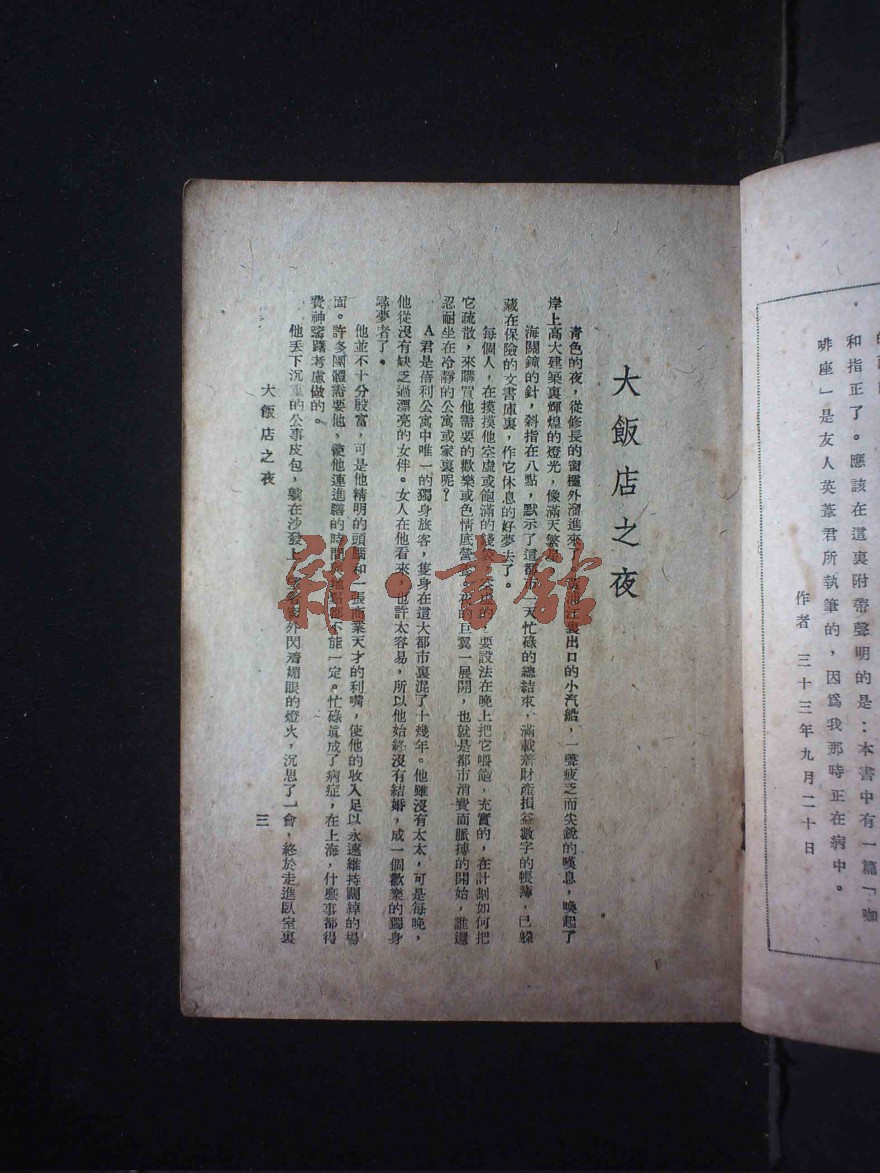 的
和指正了。應該在這裏附帶聲明的是：本書中有一篇「咖
啡座」是友人英葦君所執筆的，因爲我那時正在病中。
作者　三十三年九月二十日
大飯店之夜
青色的夜，從修長的窗櫳外溜進來，江裏出口的小汽船，一聲疲乏而尖銳的嘆息，喚起了
岸上高大建築裏輝煌的燈光，像滿天繁星。
海關鐘的針，斜指在八點，默示了這都市一天忙碌的總結束，滿載着財產損益數字的帳簿，已躲
藏在保險的文書庫裏，作它休息的好夢去了。
每個人，在摸摸他空虛或飽滿的錢袋，要設法在晚上把它喂飽，充實的，在計劃如何把
它疏散，來購買他需要的歡樂或色情底營養。夜的巨翼一展開，也就是都市消費面脈搏的開始，誰還
忍耐坐在冷靜的公寓或家裏呢？
A君是蓓利公寓中唯一的獨身旅客，隻身在這大都市裏混了十幾年。他雖沒有太太，可是每晚，
他從沒有缺乏過漂亮的女伴。女人在他看來，也許太容易，所以他始終沒有結婚，成一個歡樂的獨身
尋夢者了。
他並不十分殷富，可是他精明的頭腦和一張商業天才的利嘴，使他的收入足以永遠維持闊綽的場
面。許多團體需要他，使他連進膳的時間與地點都不能一定。忙碌眞成了病症，在上海，什麼事都得
費神躊躇考慮做的。
他丟下沉重的公事皮包，躺在沙發上，窗外閃着媚眼的燈火，沉思了一會，終於走進臥室裏
大飯店之夜
三
雜·書館